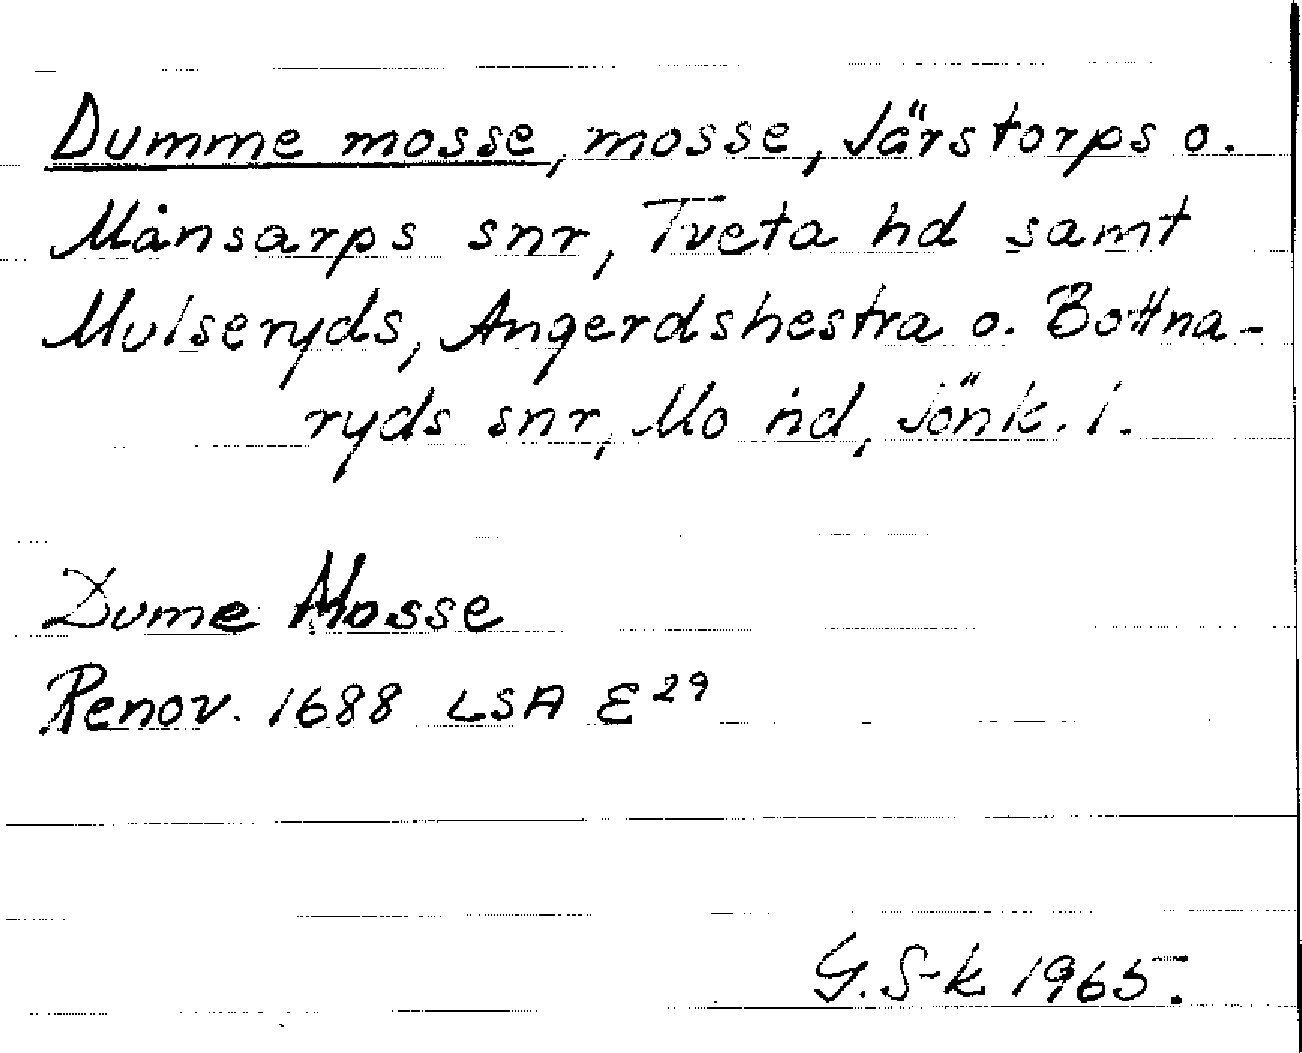 Dumme mosse, mosse, Järstorps o.
Månsarps snr, Tveta hd samt
Mulseryds, Angerdshestra o. Bottna-
ryds snr, Mo hd, Jönk. l.
Dume Mosse
Renov. 1688 LSA E 29
G. S-k 1965.